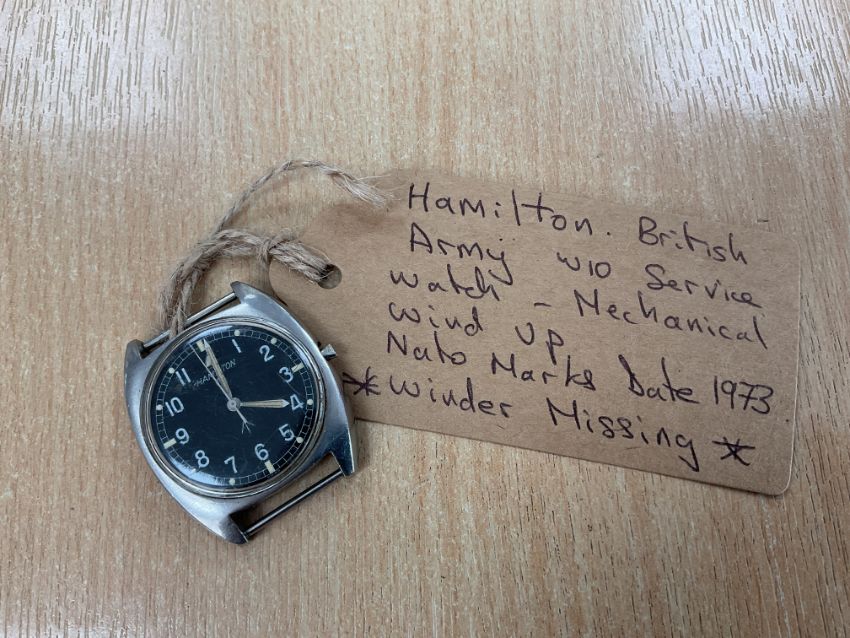 Hamilton. British
Army W10 Service
Watch - Mechanical
Wind Up
Nato Marks Date 1973
* Winder Missing *
HAMILTON
1
2
3
4
5
6
7
8
9
10
11